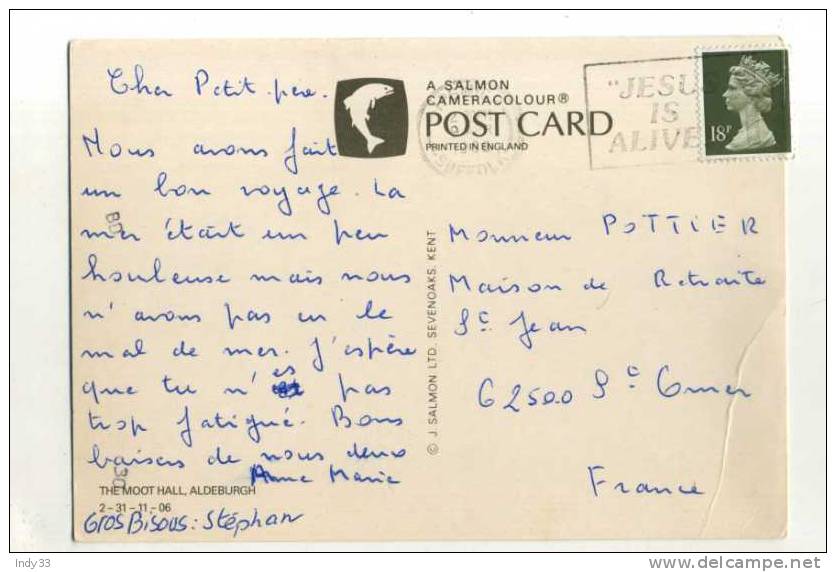 Cher Petit père.
Nous avons fait
un bon voyage. La
mer était un peu
houleuse mais nous
n'avons pas eu le
mal de mer. J'espère
que tu n'es pas
trop fatigué. Bons
baisers de nous deux
Anne Marie
Gros Bisous : Stéphan
THE MOOT HALL, ALDEBURGH
2-31-11-06
A SALMON
CAMERACOLOUR®
POST CARD
PRINTED IN ENGLAND
© J. SALMON LTD. SEVENOAKS. KENT
"JESUS
IS
ALIVE
18P
SUFFOLK
Monsieur POTTIER
Maison de Retraite
St Jean
62500 St Omer
France
Indy33
www.delcampe.net